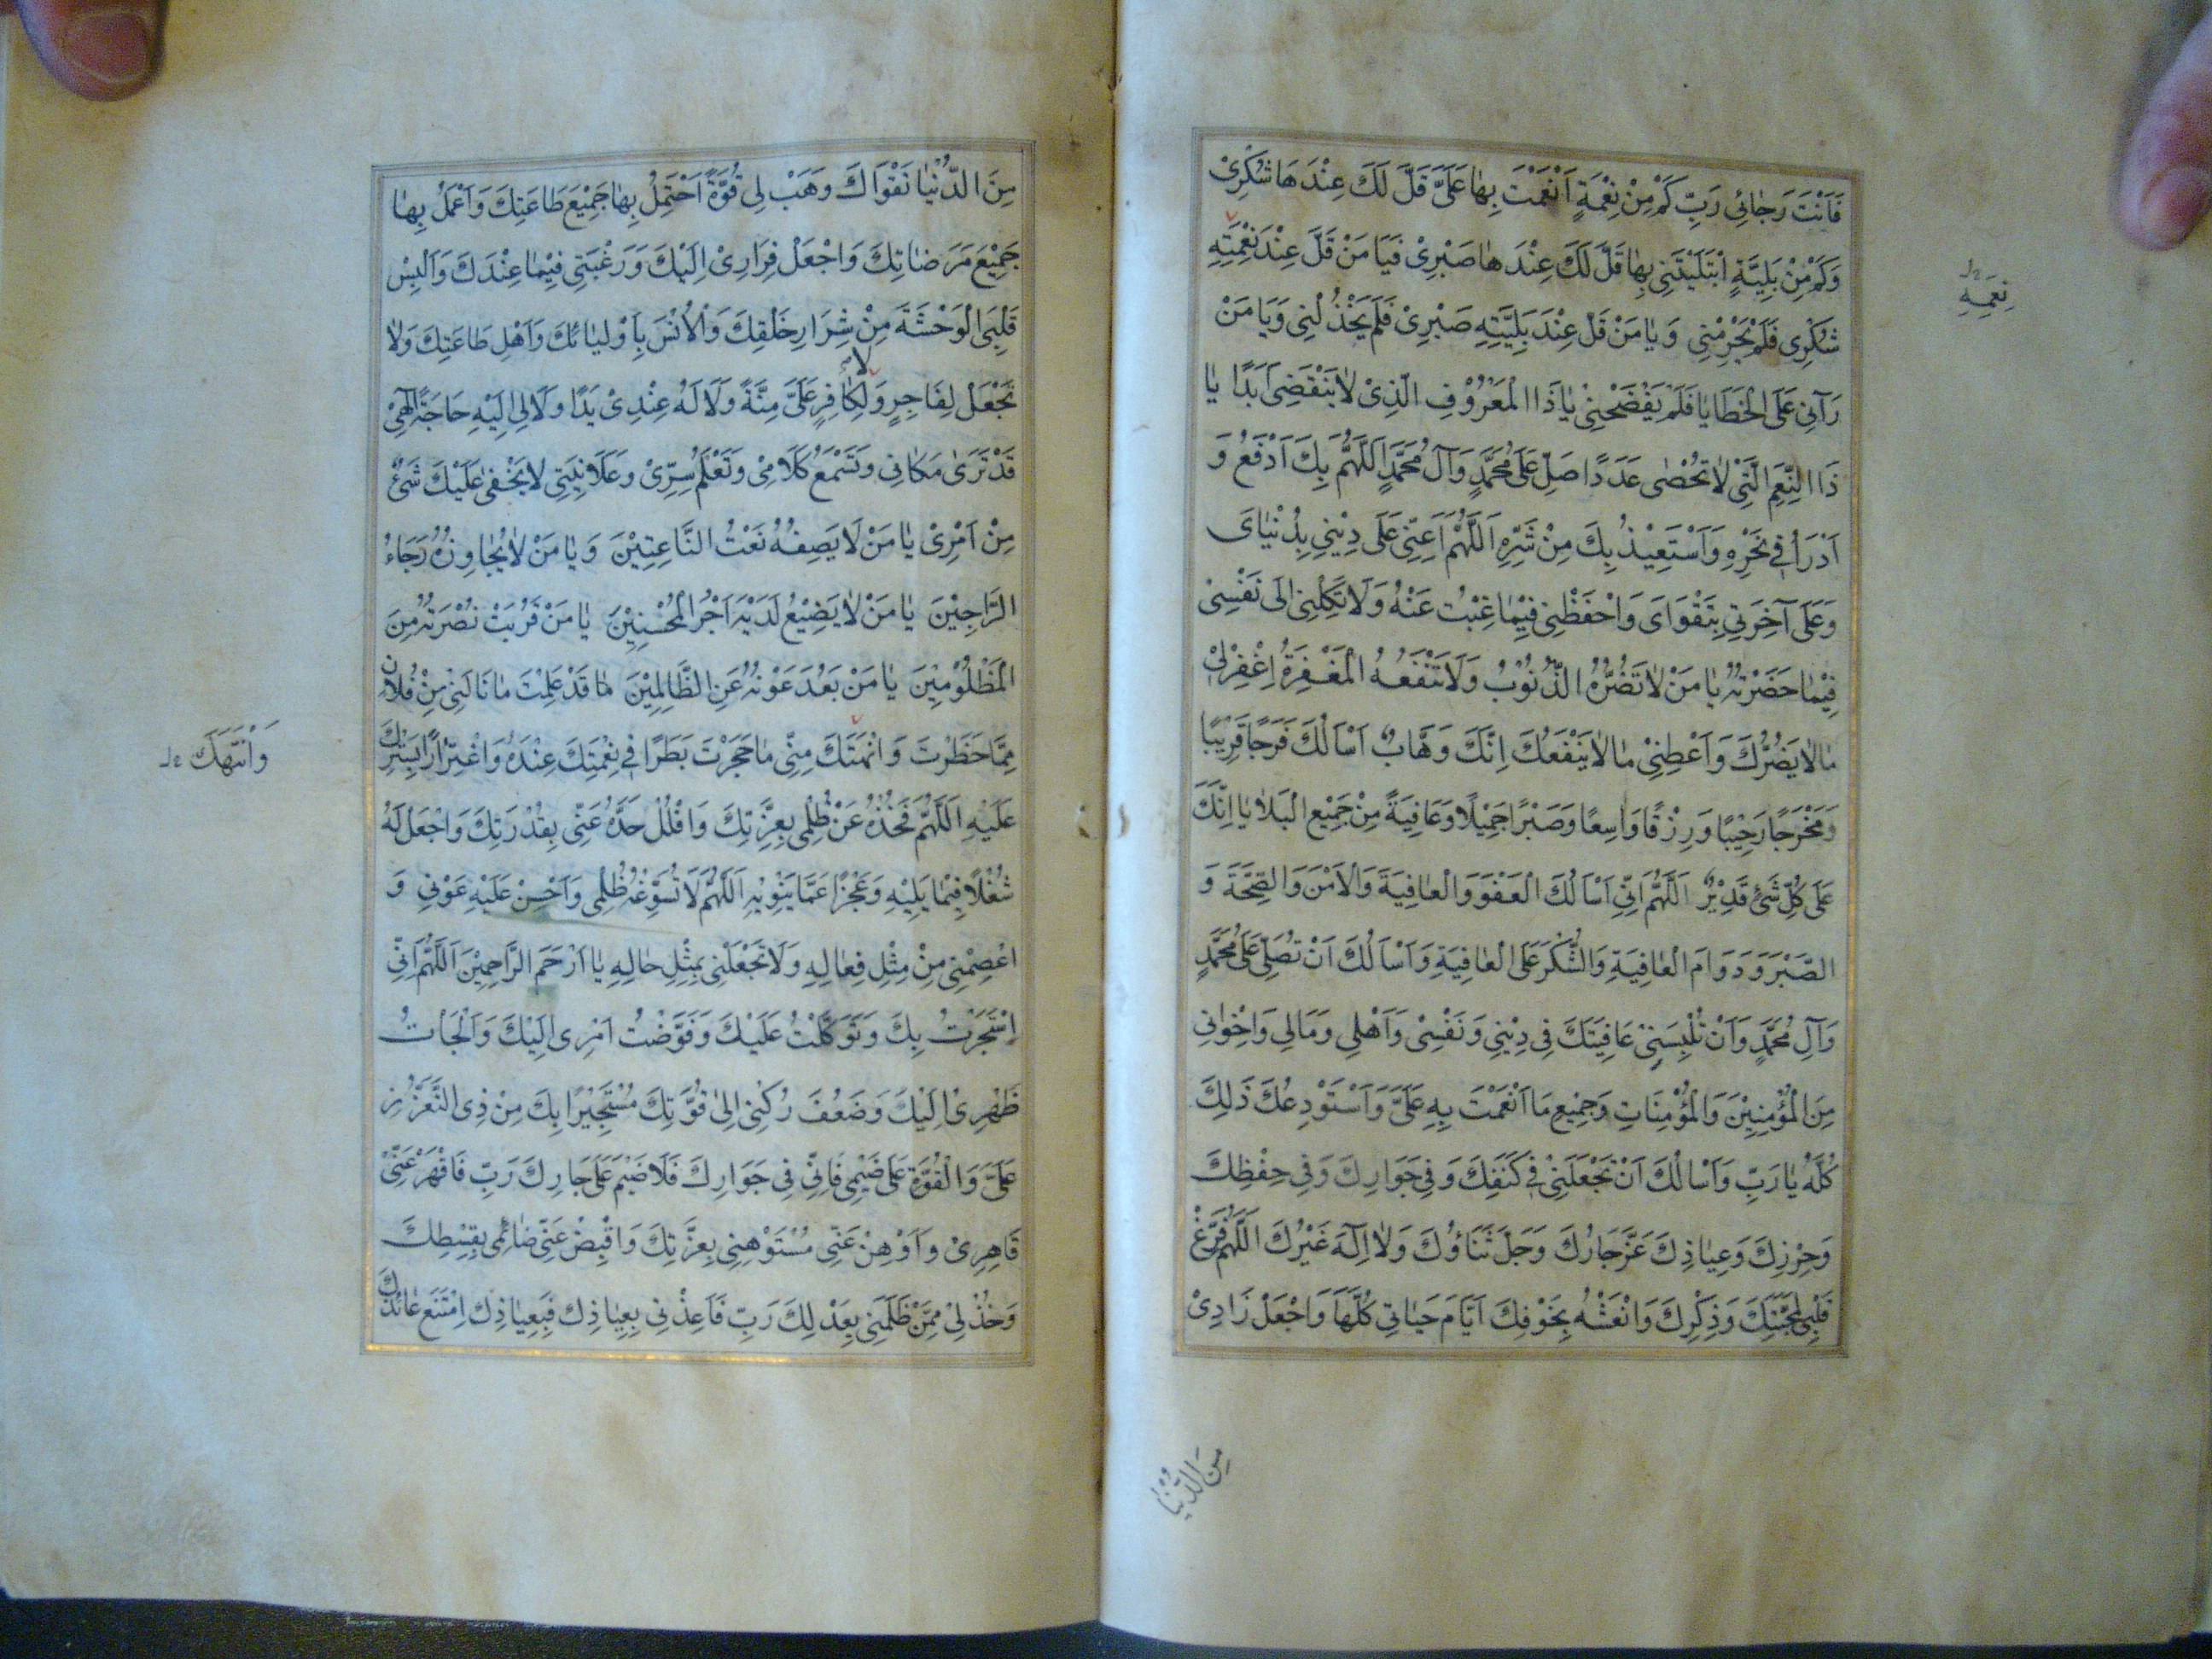 فَاَنْتَ رَجٰائِى رَبِّ كَمْ مِنْ نِعْمَةٍ اَنْعَمْتَ بِهٰا عَلَىَّ قَلَّ لَكَ عِنْدَهَا شُكْرِىْ
وَكَمْ مِنْ بَلِيَّةٍ ابْتَلَيْتَنِى بِهٰا قَلَّ لَكَ عِنْدَهٰا صَبْرِىْ فَيَا مَنْ قَلَّ عِنْدَ نِعْمَتِهِ
نِعَمِهِ
شُكْرِى فَلَمْ يَحْرِمْنِى وَيٰا مَنْ قَلَّ عِنْدَ بَلِيَّتِهِ صَبْرِىْ فَلَمْ يَخْذُلْنِى وَيَا مَنْ
رَآنِى عَلَى الْخَطَايٰا فَلَمْ يَفْضَحْنِىْ يٰا ذَا الْمَعْرُوْفِ الَّذِىْ لٰا يَنْقَضِى اَبَدًا يٰا
ذَا النِّعَمِ الَّتِىْ لٰا تُحْصٰى عَدَدًا صَلِّ عَلٰى مُحَمَّدٍ وَآلِ مُحَمَّدٍ اَللّٰهُمَّ بِكَ اَدْفَعُ وَ
اَدْرَأُ فِى نَحْرِهِ وَاَسْتَعِيْذُ بِكَ مِنْ شَرِّهِ اَللّٰهُمَّ اَعِنِّى عَلَى دِيْنِى بِدُنْيٰاىَ
وَعَلَى آخِرَتِى بِتَقْوَاىَ وَاحْفَظْنِى فِيْمٰا غِبْتُ عَنْهُ وَلَا تَكِلْنِى اِلٰى نَفْسِىْ
فِيْمٰا حَضَرْتُهُ يٰا مَنْ لٰا تَضُرُّهُ الذُّنُوْبُ وَلَا تَنْفَعُهُ الْمَغْفِرَةُ اِغْفِرْ لِىْ
مٰا لٰا يَضُرُّكَ وَاَعْطِنِىْ مٰا لٰا يَنْفَعُكَ اِنَّكَ وَهَّابٌ اَسْاَلُكَ فَرَجًا قَرِيْبًا
وَمَخْرَجًا رَحِيْبًا وَرِزْقًا وَاسِعًا وَصَبْرًا جَمِيْلًا وَعَافِيَةً مِنْ جَمِيْعِ الْبَلٰايٰا اِنَّكَ
عَلَى كُلِّ شَىْءٍ قَدِيْرٌ اَللّٰهُمَّ اِنِّى اَسْاَلُكَ الْعَفْوَ وَالْعٰافِيَةَ وَالْاَمْنَ وَالصِّحَّةَ وَ
الصَّبْرَ وَدَوَامَ الْعٰافِيَةِ وَالشُّكْرَ عَلَى الْعٰافِيَةِ وَاَسْاَلُكَ اَنْ تُصَلِّىَ عَلٰى مُحَمَّدٍ
وَآلِ مُحَمَّدٍ وَاَنْ تُلْبِسَنِىْ عَافِيَتَكَ فِى دِيْنِى وَنَفْسِىْ وَاَهْلِى وَمَالِى وَاِخْوٰانِى
مِنَ الْمُؤْمِنِيْنَ وَالْمُؤْمِنَاتِ وَجَمِيْعِ مَا اَنْعَمْتَ بِهِ عَلَىَّ وَاَسْتَوْدِعُكَ ذٰلِكَ
كُلَّهُ يٰا رَبِّ وَاَسْاَلُكَ اَنْ تَجْعَلَنِىْ فِى كَنَفِكَ وَفِى جَوَارِكَ وَفِى حِفْظِكَ
وَحِرْزِكَ وَعِيٰاذِكَ عَزَّ جَارُكَ وَجَلَّ ثَنَاؤُكَ وَلٰا اِلٰهَ غَيْرُكَ اَللّٰهُمَّ فَرِّغْ
قَلْبِى لِمَحَبَّتِكَ وَذِكْرِكَ وَانْعَشْهُ بِخَوْفِكَ اَيَّامَ حَيٰاتِى كُلَّهَا وَاجْعَلْ زَادِىْ
مِنَ الدُّنْيٰا
مِنَ الدُّنْيٰا تَقْوَاكَ وَهَبْ لِى قُوَّةً اَحْتَمِلُ بِهٰا جَمِيْعَ طَاعَتِكَ وَاَعْمَلُ بِهٰا
جَمِيْعَ مَرَضٰاتِكَ وَاجْعَلْ فِرَارِىْ اِلَيْكَ وَرَغْبَتِى فِيْمٰا عِنْدَكَ وَاَلْبِسْ
قَلْبِىَ الْوَحْشَةَ مِنْ شِرَارِ خَلْقِكَ وَالْاُنْسَ بِاَوْلِيٰائِكَ وَاَهْلِ طٰاعَتِكَ وَلٰا
تَجْعَلْ لِفَاجِرٍ وَلَا لِكٰافِرٍ عَلَىَّ مِنَّةً وَلَا لَهُ عِنْدِىْ يَدًا وَلَا لِى اِلَيْهِ حَاجَةً اِلٰهِىْ
قَدْ تَرَىٰ مَكٰانِى وَتَسْمَعُ كَلَامِىْ وَتَعْلَمُ سِرِّىْ وَعَلَانِيَتِى لٰا يَخْفٰى عَلَيْكَ شَىْءٌ
مِنْ اَمْرِىْ يٰا مَنْ لَا يَصِفُهُ نَعْتُ النَّاعِتِيْنَ وَيٰا مَنْ لٰا يُجٰاوِزُهُ رَجَاءُ
الرَّاجِيْنَ يٰا مَنْ لٰا يَضِيْعُ لَدَيْهِ اَجْرُ الْمُحْسِنِيْنَ يٰا مَنْ قَرُبَتْ نُصْرَتُهُ مِنَ
الْمَظْلُوْمِيْنَ يٰا مَنْ بَعُدَ عَوْنُهُ عَنِ الظَّالِمِيْنَ مٰا قَدْ عَلِمْتَ مٰا نَالَنِىْ مِنْ فُلٰانٍ
مِمَّا حَظَرْتَ وَانْهَتَكَ مِنِّى مٰا حَجَرْتَ بَطَرًا فِى نِعْمَتِكَ عِنْدَهُ وَاغْتِرٰارًا بِسَتْرِكَ
وَانْتَهَكَ
عَلَيْهِ اَللّٰهُمَّ فَخُذْهُ عَنْ ظُلْمِى بِعِزَّتِكَ وَافْلُلْ حَدَّهُ عَنِّى بِقُدْرَتِكَ وَاجْعَلْ لَهُ
شُغْلًا فِيْمٰا يَلِيْهِ وَعَجْزًا عَمَّا يَنْوِيْهِ اَللّٰهُمَّ لَا تُسَوِّغْهُ ظُلْمِى وَاَحْسِنْ عَلَيْهِ عَوْنِى وَ
اعْصِمْنِى مِنْ مِثْلِ فِعٰالِهِ وَلَا تَجْعَلْنِى بِمِثْلِ حٰالِهِ يٰا اَرْحَمَ الرَّاحِمِيْنَ اَللّٰهُمَّ اِنِّى
اِسْتَجَرْتُ بِكَ وَتَوَكَّلْتُ عَلَيْكَ وَفَوَّضْتُ اَمْرِى اِلَيْكَ وَاَلْجَأْتُ
ظَهْرِىْ اِلَيْكَ وَضَعُفَ رُكْنِى اِلىٰ قُوَّتِكَ مُسْتَجِيْرًا بِكَ مِنْ ذِى التَّعَزُّزِ
عَلَىَّ وَالْقُوَّةِ عَلٰى ضَيْمِى فَاِنِّى فِى جَوَارِكَ فَلَا ضَيْمَ عَلَى جَارِكَ رَبِّ فَاقْهَرْ عَنِّىْ
قَاهِرِىْ وَاَوْهِنْ عَنِّى مُسْتَوْهِنِى بِعِزَّتِكَ وَاقْبِضْ عَنِّى ضَائِمِى بِقِسْطِكَ
وَخُذْ لِىْ مِمَّنْ ظَلَمَنِى بِعَدْلِكَ رَبِّ فَاَعِذْنِى بِعِيٰاذِكَ فَبِعِيٰاذِكَ اِمْتَنَعَ عٰائِذُكَ